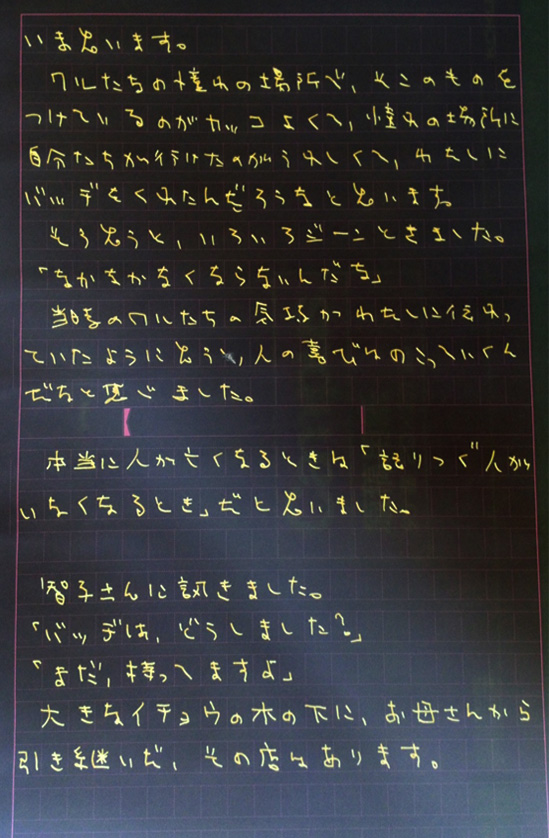 いま思います。
ワルたちの憧れの場所で、そこのものを
つけているのがカッコよくて、憧れの場所に
自分たちが行けたのがうれしくて、わたしに
バッヂをくれたんだろうなと思います。
そう思うと、いろいろジーンときました。
「なかなかなくならないんだな」
当時のワルたちの気持がわたしに伝わっ
ていたように思い、人の喜びはのこっていくん
だなと感じました。
本当に人が亡くなるときは「語りつぐ人が
いなくなるとき」だと思いました。
智子さんに訊きました。
「バッヂは、どうしました？」
「まだ、持ってますよ」
大きなイチョウの木の下に、お母さんから
引き継いだ、その店はあります。